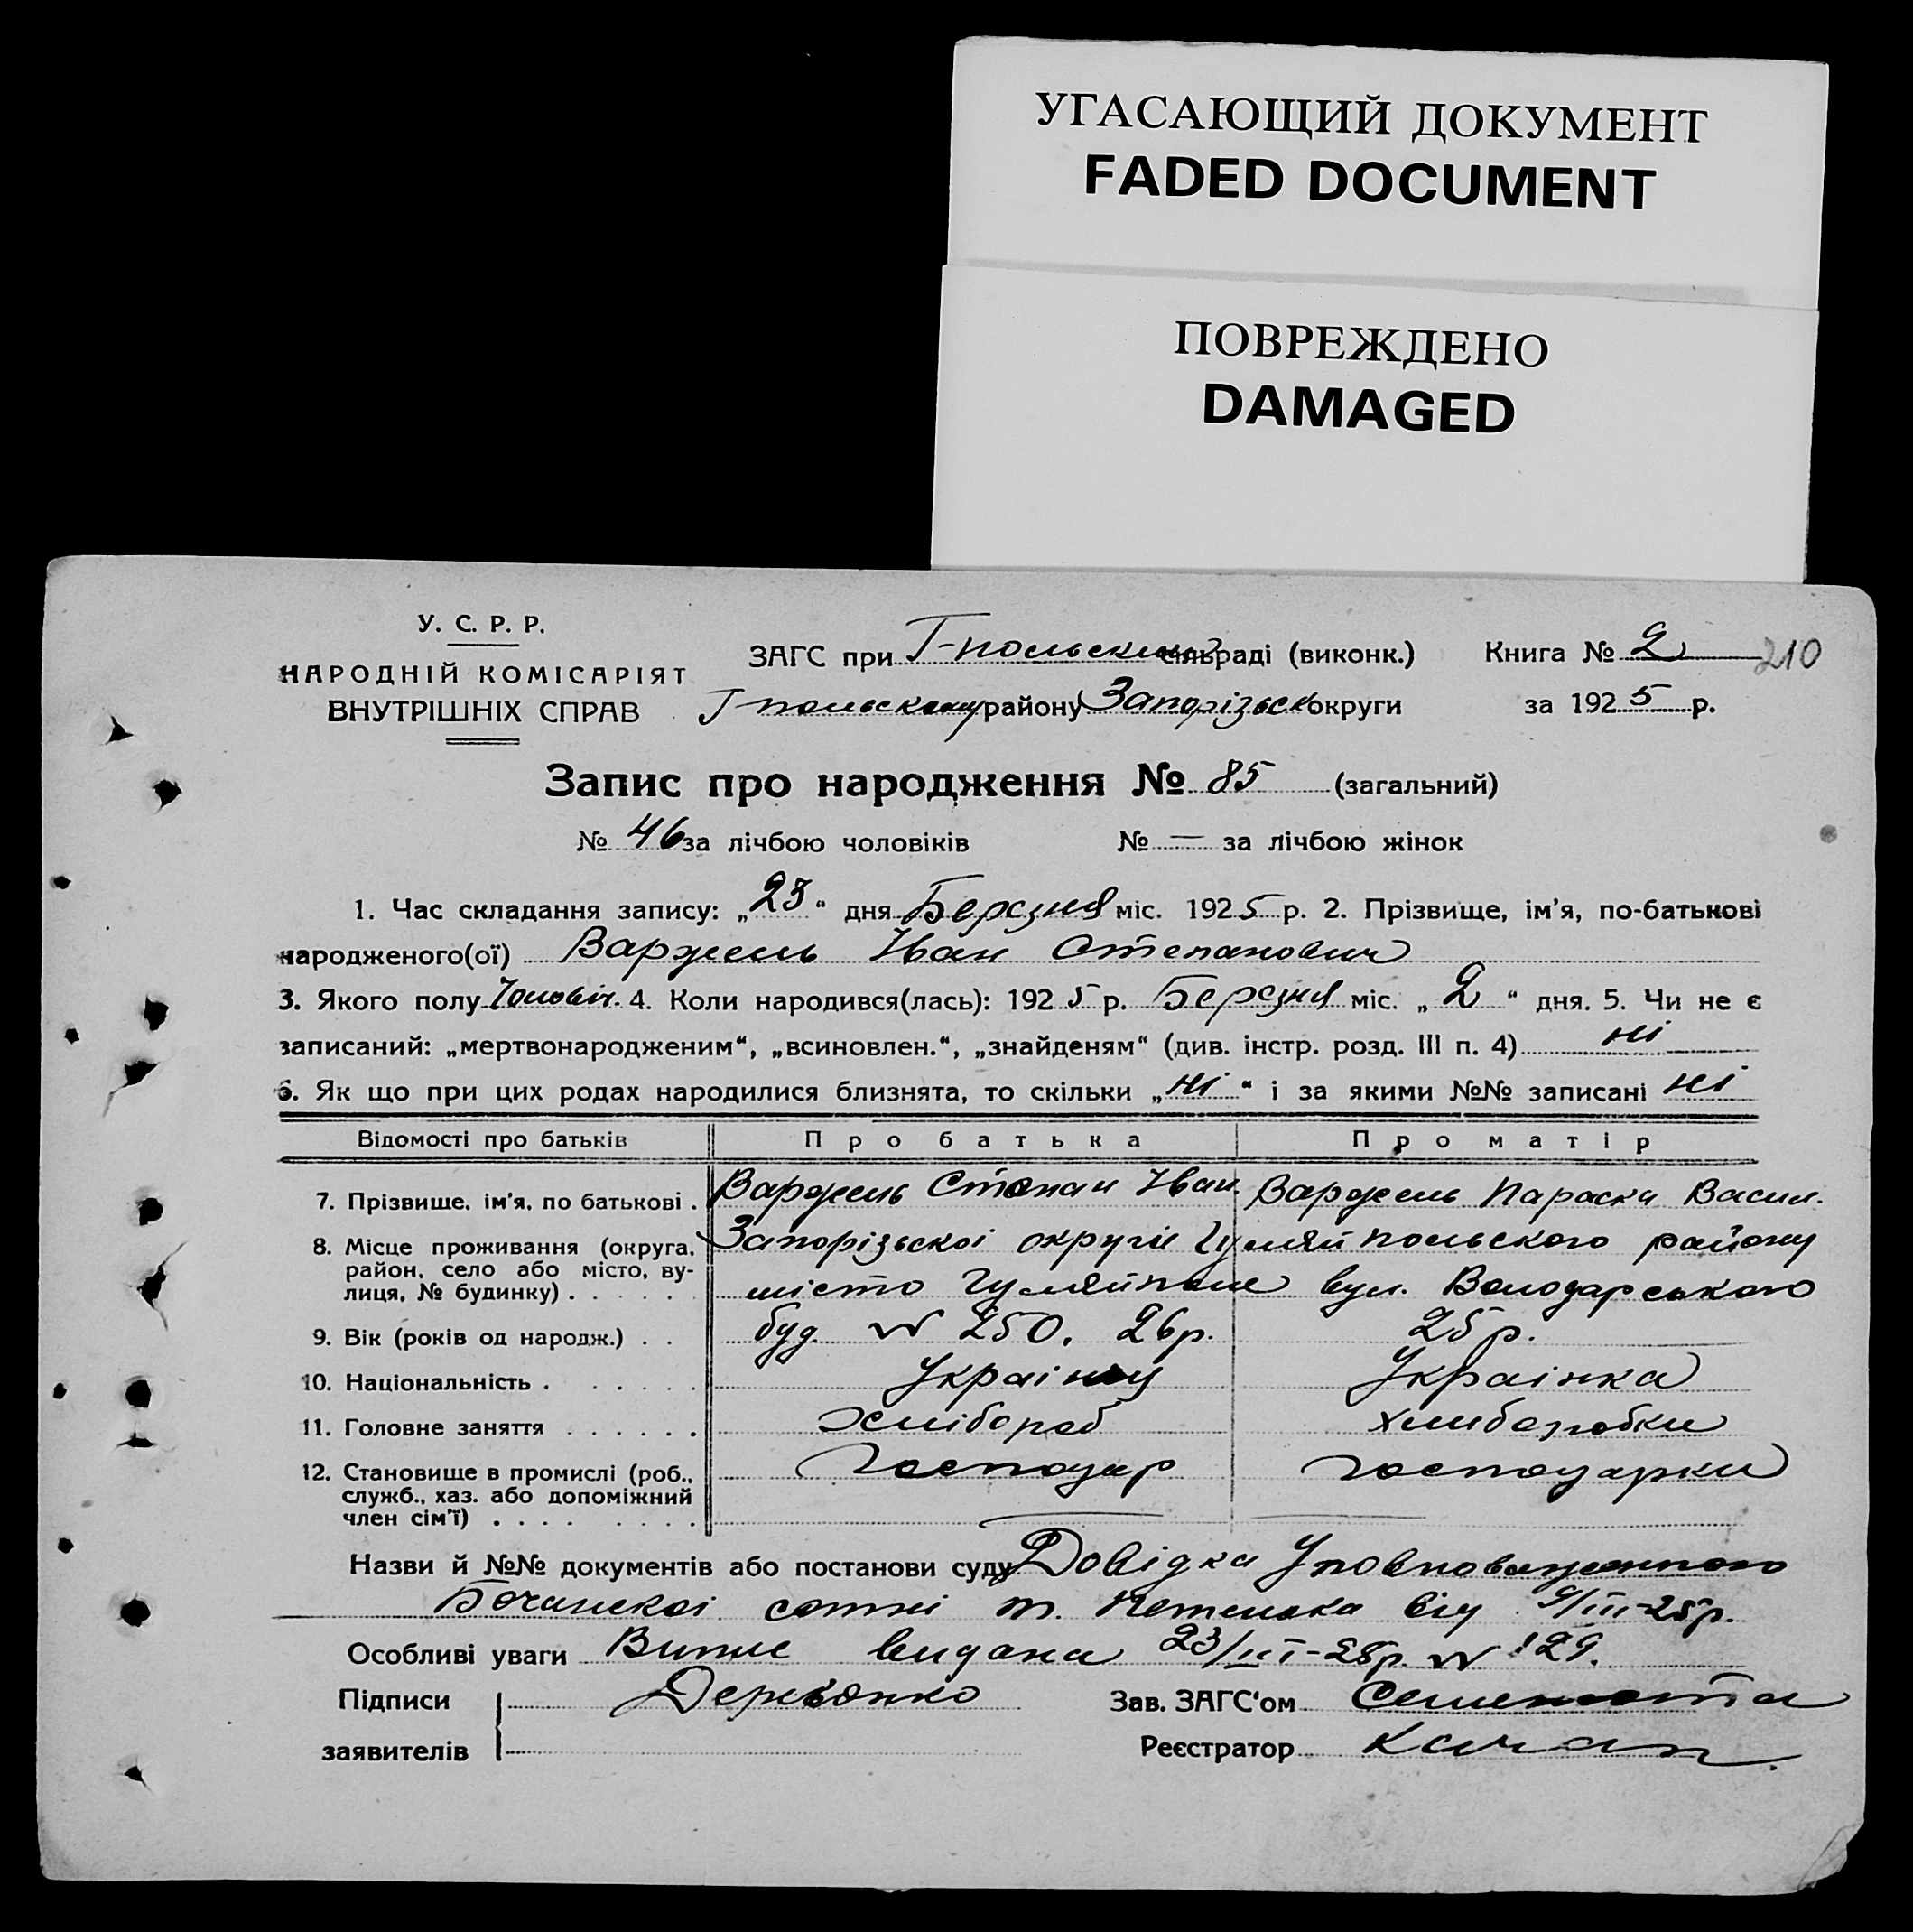 УГАСАЮЩИЙ ДОКУМЕНТ
FADED DOCUMENT
ПОВРЕЖДЕНО
DAMAGED
У. С. Р. Р.
НАРОДНІЙ КОМІСАРІЯТ
ВНУТРІШНІХ СПРАВ
ЗАГС при Г-польский сільраді (виконк.) Книга № 2 210
Г польському району Запорізьк округи за 1925 р.
Запис про народження № 85 (загальний)
№ 46 за лічбою чоловіків № — за лічбою жінок
1. Час складання запису: „23“ дня Березня міс. 1925 р. 2. Прізвище, ім'я, по-батькові
народженого(ої) Варжель Іван Степанович
3. Якого полу Чоловіч. 4. Коли народився(лась): 1925 р. Березня міс. „2“ дня. 5. Чи не є
записаний: „мертвонародженим“, „всиновлен.“, „знайденям“ (див. інстр. розд. III п. 4) ні
6. Як що при цих родах народилися близнята, то скільки „ні“ і за якими №№ записані ні
Відомості про батьків Про батька Про матір
7. Прізвище, ім'я, по батькові . Варжель Степан Іван. Варжель Параска Васил.
8. Місце проживання (округа, Запорізьскоі округи Гуляйпольского району
район, село або місто, ву-
лиця, № будинку) . . . . . . місто Гуляйполе вул. Володарського
9. Вік (років од народж.) . . буд. № 250. 26р. 25р.
10. Національність . . . . . . . Украінец Украінка
11. Головне заняття . . . . . . хлібороб хлиборобки
12. Становище в промислі (роб., Господар господарки
служб., хаз. або допоміжний
член сім'ї) . . . . . . . .
Назви й №№ документів або постанови суду Довідка Уповноваженного
сотні т. від 9/III-25р.
Особливі уваги Випис видана 23/III-25р. № 129.
Підписи Деревянко Зав. ЗАГС'ом
заявителів Реєстратор Качан